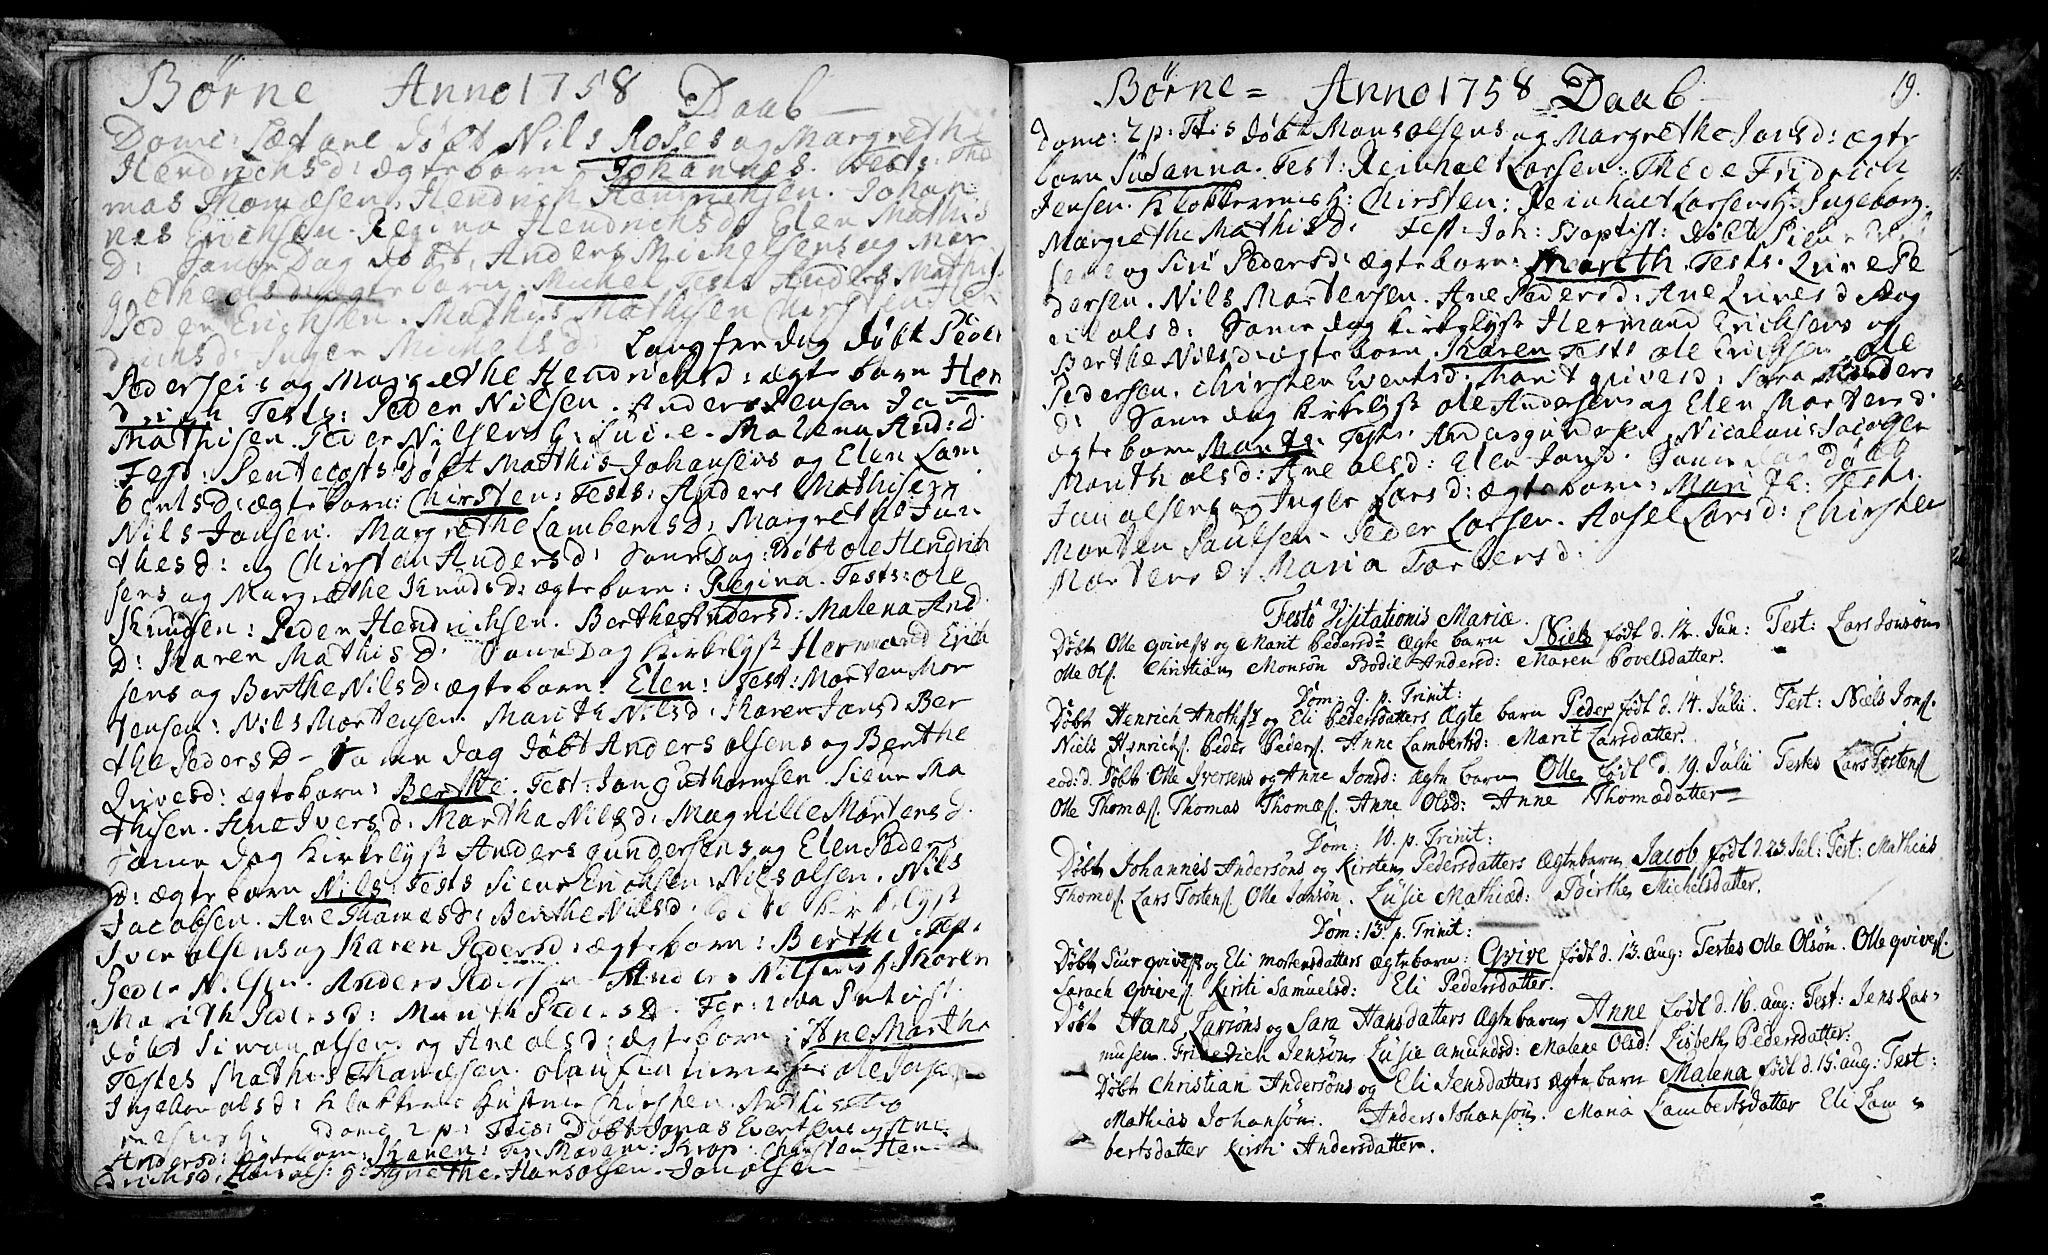 Børne Anno 1758 Daab
Domc: Lætare døbt Nils Roses og Margrethe
Hendrichsd: ægte barn Johannes. Tests: Tho
mas Thomæsen. Hendrich Hendrichsen. Johan
nes Erichsen. Regina Hendrichsd: Elen Mathis
D: Same Dag døbt Anders Michelsens og Mar
grethe olsd: ægte barn Michel Tests Anders Mathis
Peder Erichsen. Mathis Mathisen Chirsten
drichsd: Inger Michelsd: Langfredag døbt Peder
Pedersens og Margrethe Hendrichsd: ægte barn Hen
drich Tests: Peder Nilsen. Anders Jensen Jan
Mathisen. Peder Nilsens H: Lucie. Malena And: D.
Fest: Pentecosts Døbt Matthis Johansens og Elen Lam
bertsd: ægte barn: Chirsten: Tests: Anders Mathisen
Nils Jansen. Margrethe Lambertsd: Margrethe Jan
thesd: og Chirsten Andersd: Same Dag: Døbt ole Hendrich
sens og Margrethe Knudsd: ægte barn: Regina. Tests: ole
Knudsen: Peder Hendrichsen. Berthe Andersd: Malena And
D: Karen Mathisd: Same Dag Kirkelyst Hermand Erich
sens og Berthe Nilsd: ægte barn: Elen: Test: Morten Mor
tensen: Nils Mortensen. Marith Nilsd: Karen Jansd Ber
the Pedersd - Same dag døbt Anders olsens og Berthe
Qvivesd: ægte barn: Berthe. Test: Jan Guthormsen. Sieur Ma
thisen. Ane Iversd: Martha Nilsd: Magnille Mortensd.
Same dag Kirkelyst Anders Gundersens og Elen Peders
D: ægte barn Nils: Tests Sieur Erichsen. Nils olsen. Nils
Jacobsen. Ane Thomesd: Berthe Nilsd: Kirkelyst
Iver olsens og Karen Pedersd: ægte barn: Berthe. Test:
Peder Nilsen. Anders Pedersen Anders Nilsens H: Karen
Marith Pedersd: Marith Pedersd.
døbt Siman olsens og Ane olsd: ægte barn: Ane Martha
Testes Mathis Thomesen. ole
Ingebor olsd: Klokkerens Hustrue Chirsten.
Domc 2 p: Ttis: Døbt Jonas Evertsens
Andersd: ægte barn: Karen: Test Madam: Krop. Chirsten Hen
drichsd: Hans olsens H: Agnethe. Hans olsen. Jan olsen
Børne = Anno 1758 Daab 19.
Domc: 2 p: Ttis Døbt Mons olsens og Margrethe Jansd: ægte
barn Susanna. Test: Reinholt Larsen: Thede Fridrich
Jensen. Klokkerens H: Chirsten: Reinholt Larsens H: Ingeborg.
Margrethe Mathisd: Fest: Joh: Baptist: døbt
sens og Siri Pedersd: ægte barn: Marith. Tests. Qvive Pe
dersen. Nils Mortensen. Ane Pedersd: Ane Qvivesd
olsd: Same dag Kirkelyst Hermand Erichsens og
Berthe Nilsd: ægte barn. Karen Tests ole Erichsen ole
Pedersen. Chirsten Evertsd: Marit Qvivesd: Sara Anders
d: Same dag Kirkelyst ole Andersens og Elen Mortensd.
ægte barn Martha Tests: Anders Gundersen. Nicolaus Jacobsen
Marith olsd: Ane olsd: Elen Jansd. Same dag Døbt
Jan olsens og Inger Larsd: ægte barn: Marithe: Tests:
Morten Paulsen. Peder Larsen. Aasel Larsd: Chirsten
Mortensd: Maria Torbersd:
Festo Visitationis Mariæ.
Døbt Olle Qvives og Marit Pedersd: Ægte barn Niels født d. 12. Jun: Test: Lars Jonsøn
Olle Ols. Christian Monsøn Bodil Andersd: Maren Povelsdatter.
Dom: 9. p. Trinit:
Døbt Henrich Anoths: og Eli Pedersdatters Ægte barn Peder født d. 14. Julii. Test: Niels Jons.
Niels Henrichs. Peder Peders. Anne Lambertsd: Marit Larsdatter.
eod: d. Døbt Olle Iversens og Anne Jonsd: Ægte barn Olle født d. 19. Julii Testes Lars Tostens
Olle Thomæs. Thomas Thomæs. Anne Olsd: Anne Thomædatter
Dom: 10. p. Trinit:
Døbt Johannis Andersøns og Kirsten Pedersdatters Ægte barn Jacob født d. 23 Jul: Test: Mathias
Thomæs. Lars Tostens Olle Jonsøn. Lusie Mathiæd: Birthe Michelsdatter.
Dom: 13. p. Trinit:
Døbt Siur Qvives og Eli Mortensdatters Ægte barn: Qvive født d. 13. aug: Testes Olle Olsøn. Olle Qvives.
Sarach Qvives. Kirsti Samuelsd: Eli Pedersdatter.
Døbt Hans Larsøns og Sara Hansdatters Ægte barn Anne født d. 16. aug: Test: Jens Ras-
musen. Friderich Jensøn Lusie Amundsd: Malene Olsd: Lisbeth Pedersdatter.
Døbt Christian Andersøns og Eli Jensdatters Ægte barn Malena født d. 15. aug: Test:
Mathias Johansøn. Anders Johansøn. Maria Lambertsdatter Eli Lam-
bertsdatter Kirsti Andersdatter.